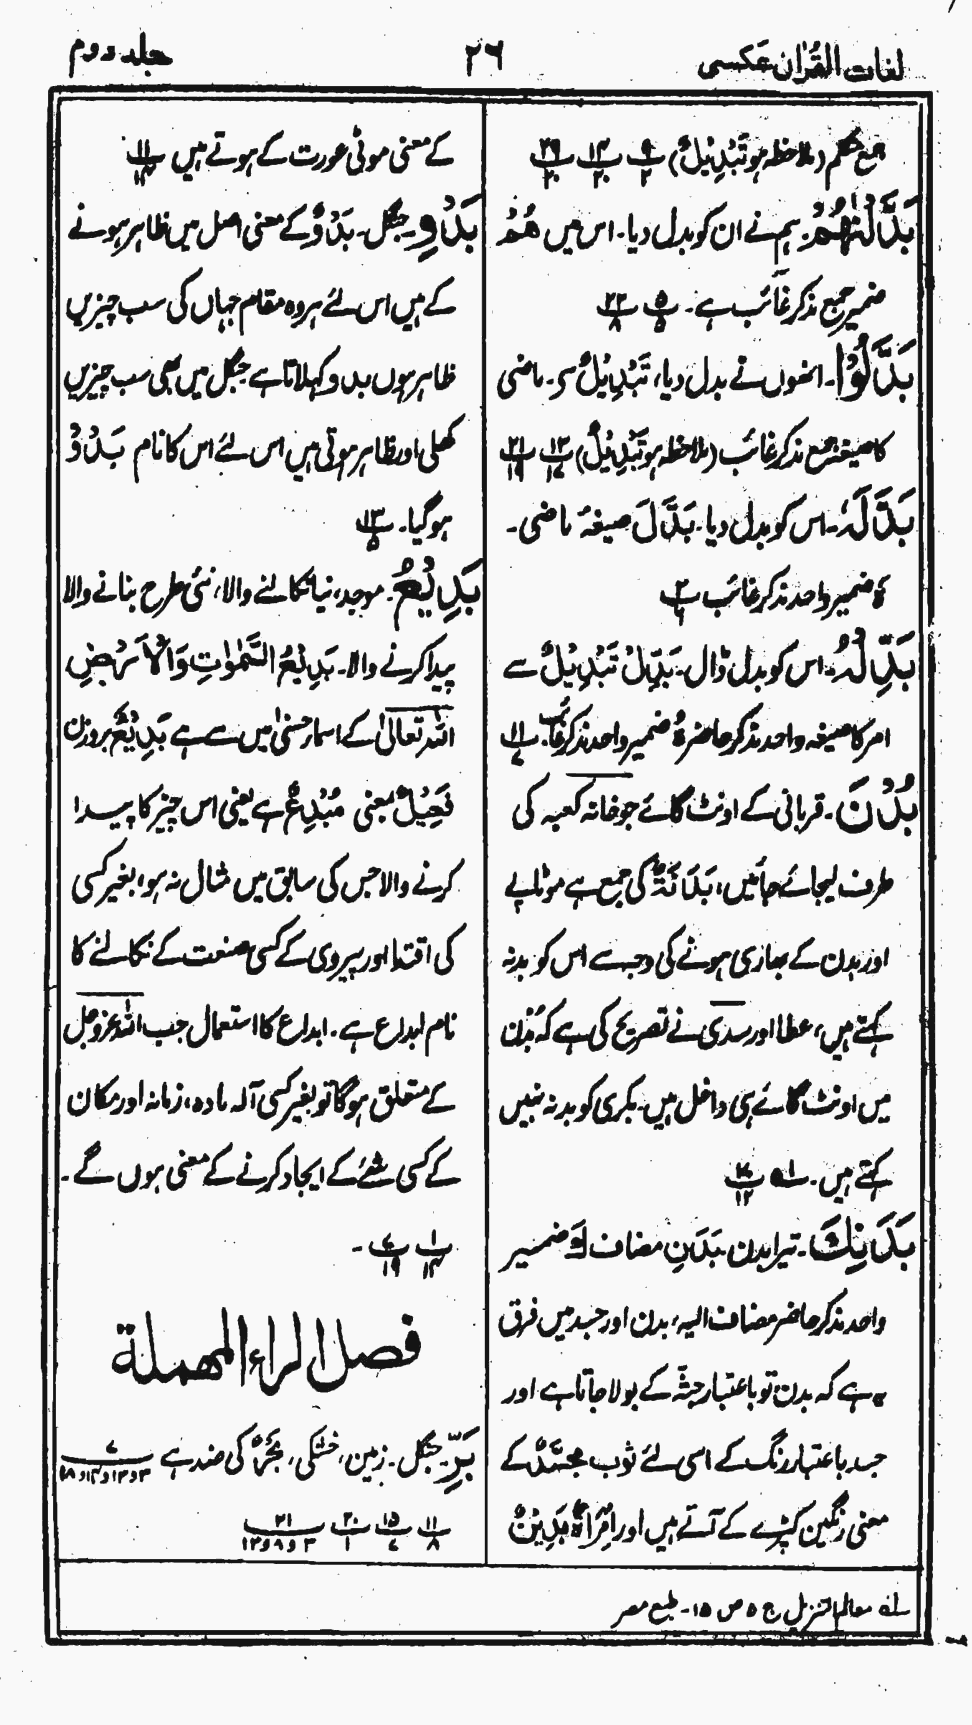 لغات القرآن عکسی
۲۶
جلد دوم
جمع متکلم (ملاحظہ ہو تَبْدِیْلٌ)
بَدَّلْنٰھُمْ۔ ہم نے ان کو بدل دیا۔ اس میں ھُمْ
ضمیر جمع مذکر غائب ہے۔ ۵/۵ ۲۲/۸
بَدَّلُوْا۔ انھوں نے بدل دیا، تَبْدِیْلٌ سے۔ ماضی
کا صیغہ جمع مذکر غائب (ملاحظہ ہو تَبْدِیْلٌ) ۱۳/۱۷ ۲۱/۱۹
بَدَّلَہٗ۔ اس کو بدل دیا۔ بَدَّلَ صیغۂ ماضی۔
ہٗ ضمیر واحد مذکر غائب ۲/۶
بَدِّلْہُ۔ اس کو بدل ڈال۔ بَدِّلْ تَبْدِیْلٌ سے
امر کا صیغہ واحد مذکر حاضر ہُ ضمیر واحد مذکر غائب۔ ۱۱/۷
بُدْنَ۔ قربانی کے اونٹ گائے جو خانہ کعبہ کی
طرف لیجائے جائیں، بَدَنَۃٌ کی جمع ہے موٹاپے
اور بدن کے بھاری ہونے کی وجہ سے اس کو بدنہ
کہتے ہیں، عطا اور سدی نے تصریح کی ہے کہ بُدْن
میں اونٹ گائے ہی داخل ہیں۔ بکری کو بدنہ نہیں
کہتے ہیں۔ ۱؎ ۱۷/۱۲
بَدَنِكَ۔ تیرا بدن۔ بَدَنِ مضاف كَ ضمیر
واحد مذکر حاضر مضاف الیہ، بدن اور جسد میں فرق
یہ ہے کہ بدن تو باعتبار جثّہ کے بولا جاتا ہے اور
جسد باعتبار رنگ کے اسی لئے ثوب مُجَسَّدٌ کے
معنی رنگین کپڑے کے آتے ہیں اور اِمْرَأَۃٌ بَدِیْنٌ
کے معنی موٹی عورت کے ہوتے ہیں ۱۱/۱۴
بَدْوِ۔ جنگل۔ بَدْوٌ کے معنی اصل میں ظاہر ہونے
کے ہیں اس لئے ہر وہ مقام جہاں کی سب چیزیں
ظاہر ہوں بدو کہلاتا ہے جنگل میں بھی سب چیزیں
کھلی اور ظاہر ہوتی ہیں اس لئے اس کا نام بَدْوٌ
ہوگیا۔ ۱۳/۵
بَدِیْعُ۔ موجد، نیا نکالنے والا، نئی طرح بنانے والا
پیدا کرنے والا۔ بَدِیْعُ السَّمٰوٰتِ وَالْاَرْضِ
اللہ تعالیٰ کے اسماء حسنیٰ میں سے ہے بَدِیْعٌ بروزن
فَعِیْلٌ بمعنی مُبْدِعٌ ہے یعنی اس چیز کا پیدا
کرنے والا جس کی سابق میں مثال نہ ہو، بغیر کسی
کی اقتدا اور پیروی کے کسی صنعت کے نکالنے کا
نام ابداع ہے۔ ابداع کا استعمال جب اللہ عزوجل
کے متعلق ہوگا تو بغیر کسی آلہ مادہ، زمانہ اور مکان
کے کسی شئے کے ایجاد کرنے کے معنی ہوں گے۔
۱/۱۴ ۷/۱۹۔
فصل الراء المهملة
بَرِّ۔ جنگل۔ زمین، خشکی، بَحْرٌ کی ضد ہے
۱۱/۸ ۱۵/۷ ۲۰/۱ ۲۱/۳و۸و۱۳
۱؎ معالم التنزیل ج ۵ ص ۱۵۔ طبع مصر